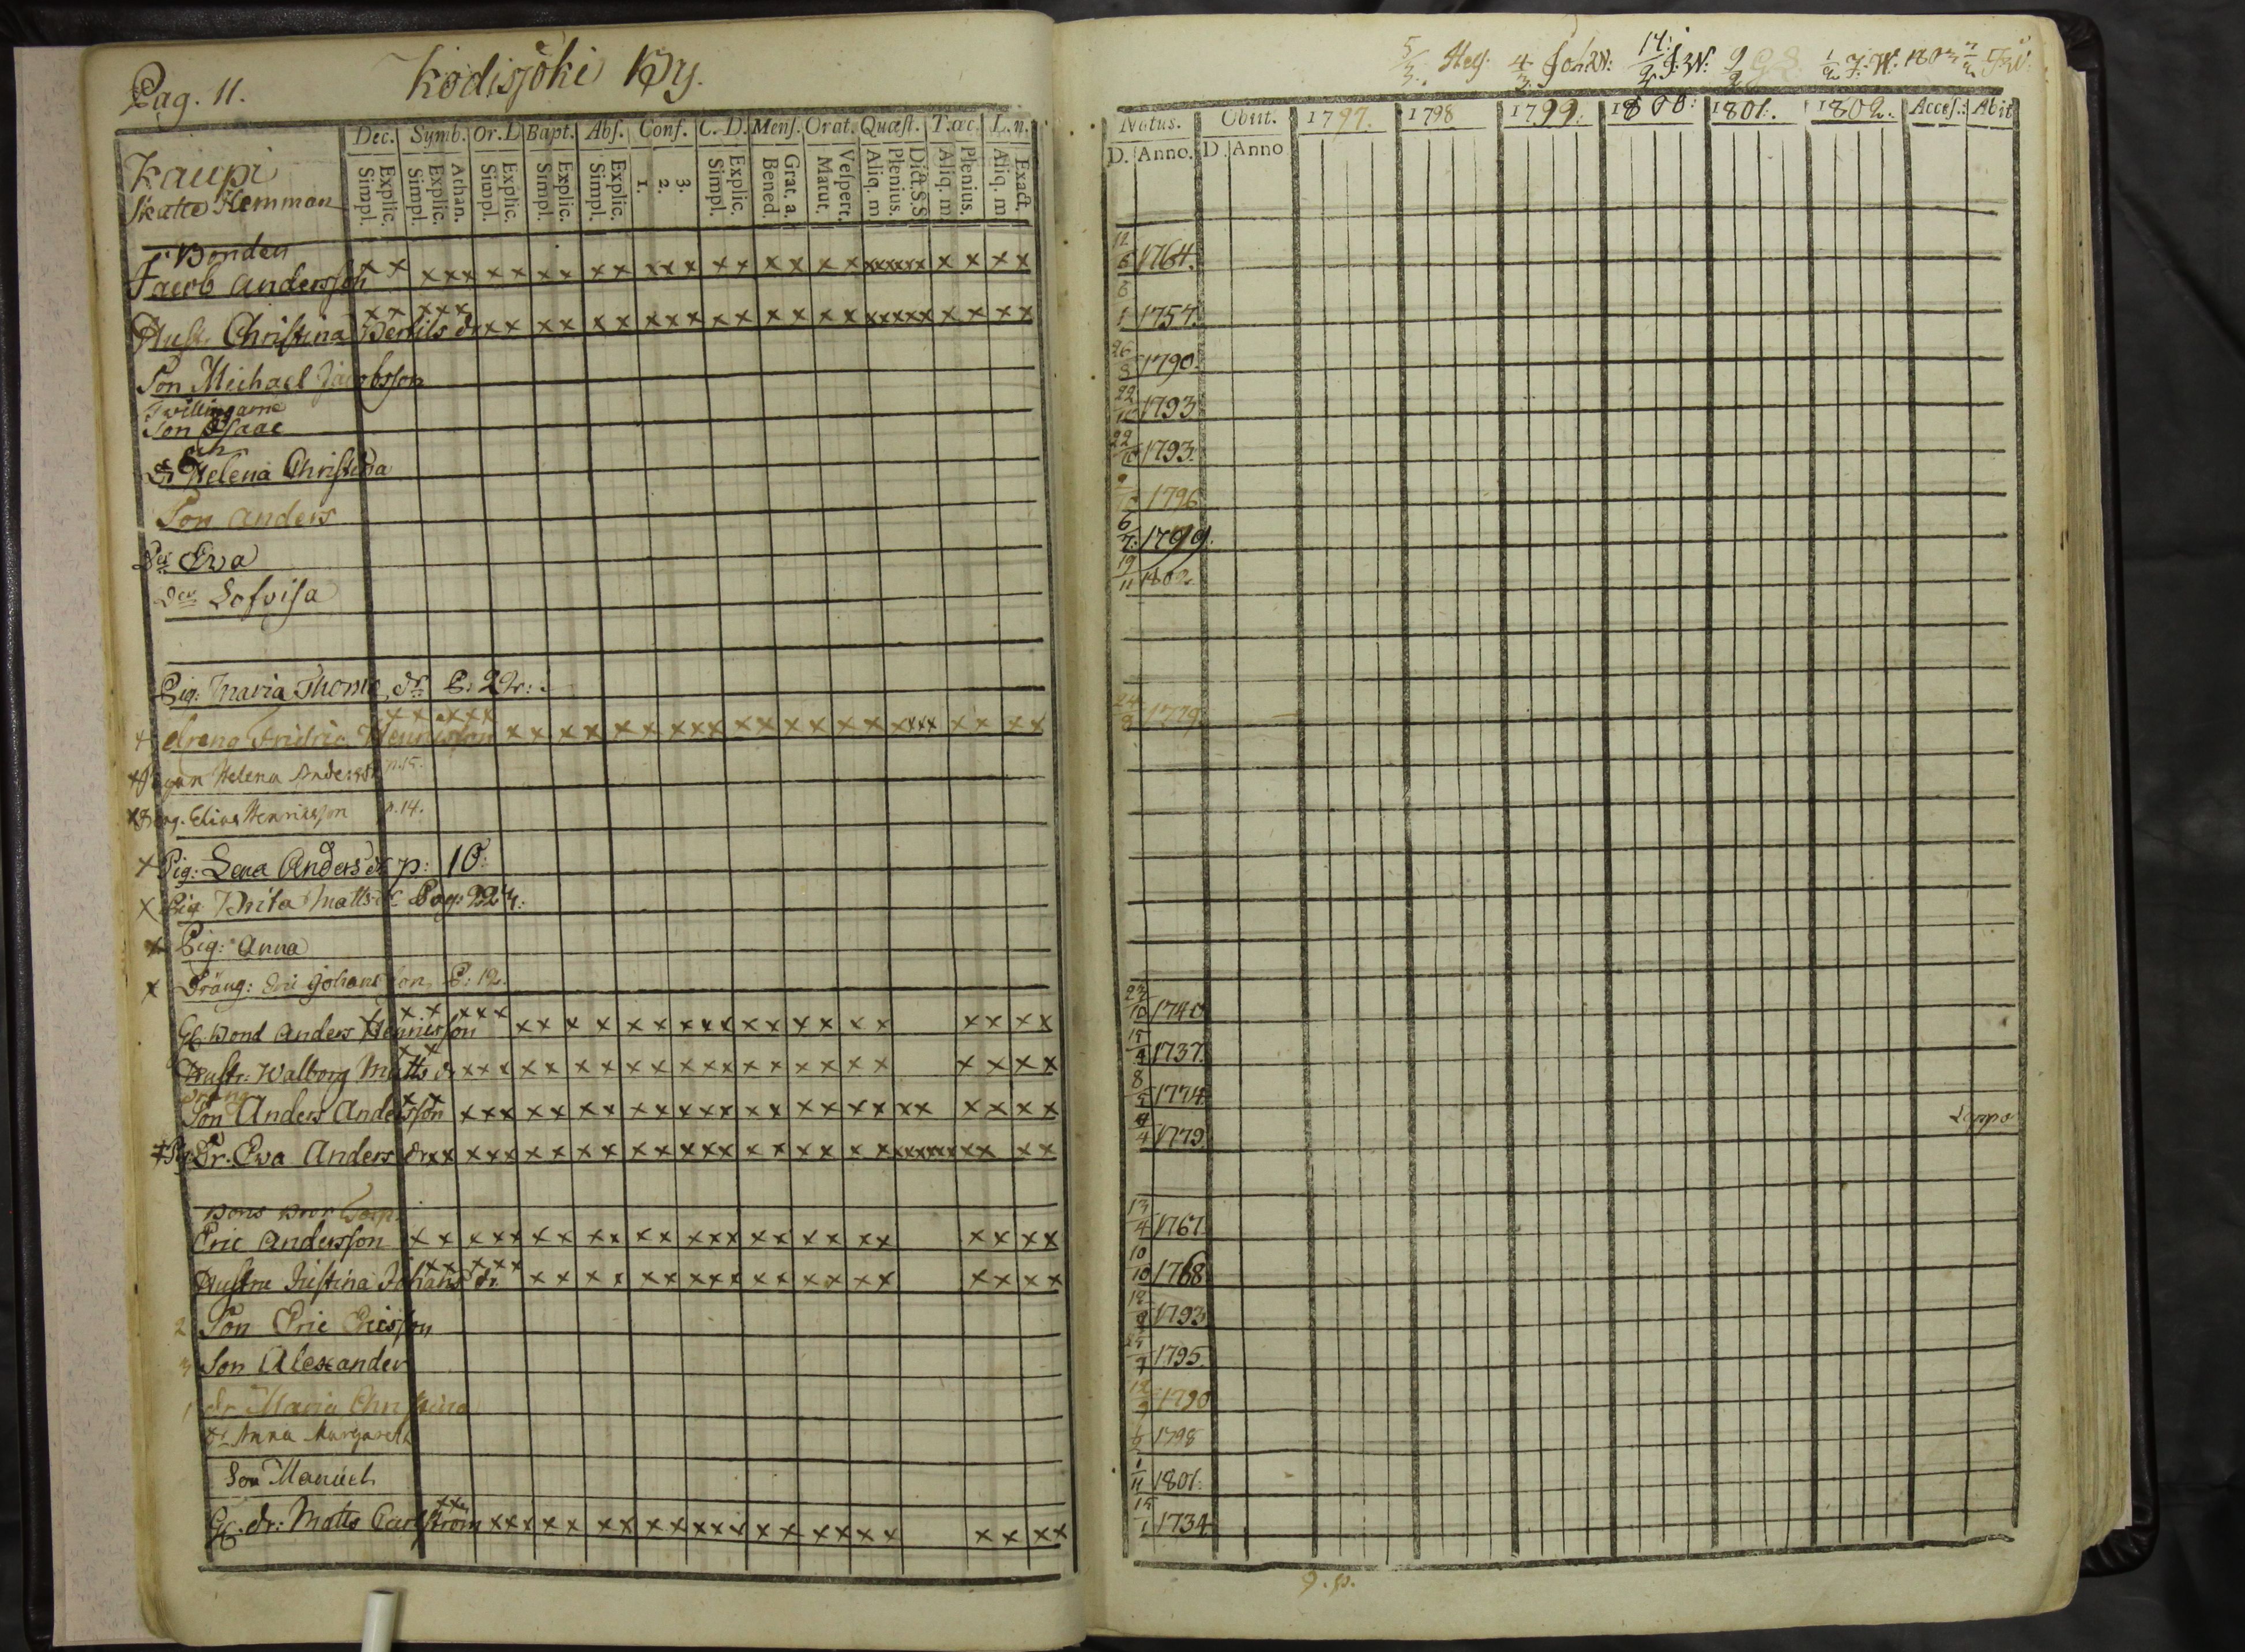 Pag. 11.
Kodisjoki By.
Kaupi
Skatte Hemman
Dec. Symb. Or. D Bapt. Abs. Conf. C. D. Mens. Orat. Quæst. T. æc. L. n.
Simpl. Explic. Simpl. Explic. Athan. Simpl. Explic. Simpl. Explic. Simpl. Explic. 1. 2. 3. Simpl. Explic. Bened. Grat. a. Matut. Vespert. Aliq. m Plenius. Dict. S.S Aliq. m Plenius. Aliq. m Exact.
Bonden
Jacob Andersson x x x x x x x x x x x x x x x x x x x x xxxxxx x x x x
Hust. Christina Bertils dr x x x x x x x x x x x x x x x x x x x x xxxxx x x x x
Son Michael Jacobsson
Twillingarne
Son Isaac
och
dr Helena Christina
Son Anders
dr Ewa
dr Lofvisa
Pig: Maria Thome dr P: 22:
x dreng Fridric Henricsson x x x x x x x x x x x x x x x x x x x x x xxx x x x x
x Pigan Helena Andersdr p.15.
x Dreng. Elias Henricsson p. 14.
x Pig: Lena Anders dr p: 10:
x Pig Brita Matts dr Pag: 224:
x Pig: Anna
x Dräng: Eric Johansson P: 12.
Gl. Bond Anders Henricsson x x x x x x x x x x x x x x x x x x x x x x x x
Hustr: Walborg Matts dr x x x x x x x x x x x x x x x x x x x x x x x x
dräng
Son Anders Andersson x x x x x x x x x x x x x x x x x x x x x x x x x x
x Pig Dr. Eva Anders dr x x x x x x x x x x x x x x x x x x x x xxxxxx x x x x
Bons Bror Torp.
Eric Andersson x x x x x x x x x x x x x x x x x x x x x x x x
Hustru Justina Johans dr x x x x x x x x x x x x x x x x x x x x x x x x
2 Son Eric Ericsson
3 Son Alexander
1 dr Maria Christina
dr Anna Margareth
Son Manuel
Gl. dr: Matts Carlström x x x x x x x x x x x x x x x x x x x x x x
5/3. 4/3. 14/2 J.W: 9/2 1/2 J. W. 1803
Natus. Obiit. 1797. 1798 1799. 1800: 1801. 1802. Acces. Abiit
D. Anno. D. Anno
12/6 1764.
1 1757.
26/8 1790.
22/10 1793
22/10 1793.
9/10 1796
6/7. 1799.
19/11 1802.
24/8 1779
23/10 1740
15/4 1737.
8/5 1774
4/4 1779. Lappo
13/4 1767.
10/10 1768
18/9 1793
1795.
12/9 1790
1798
1/11 1801.
15/1 1734